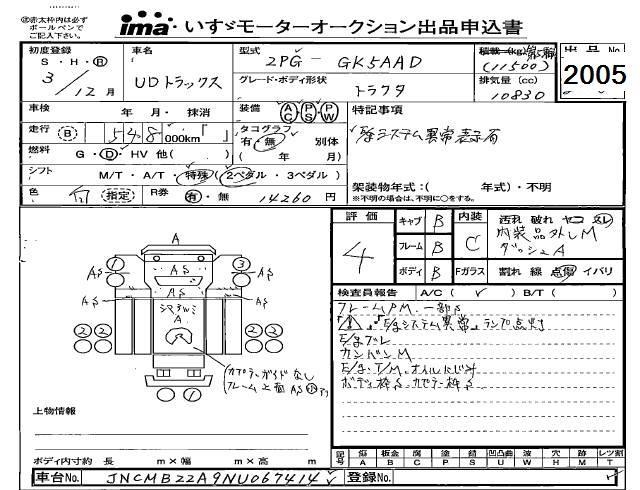 ㊟赤太枠内は必ず
ボールペンで
ご記入下さい。
ima いすゞモーターオークション出品申込書
初度登録
S・H・Ⓡ
3/12月
車名
UDトラックス
型式
2PG - GK5AAD
グレード・ボディ形状
トラクタ
積載 (kg)
(11500)
排気量 (cc)
10830
出品No.
2005
車検 年 月・抹消
走行 Ⓑ 548,000km
燃料 G・Ⓓ・HV 他( )
シフト M/T・A/T・特殊(2ペダル・3ペダル)
色 白 指定
R券 有・無 14260円
装備 AC PS PW
タコグラフ
有・無 別体
( 年 月)
特記事項
E/gシステム異常表示有
架装物年式:( 年式)・不明
※不明の場合は、不明に○をする。
評価
4
キャブ B
フレーム B
ボディ B
内装 C
Fガラス
汚れ 破れ ヤコ
内装品外しM
ダッシュA
割れ 線 点傷 イバリ
検査員報告 A/C( ✓ ) B/T( )
フレームPM.一部S
「⚠」「E/gシステム異常」ランプ点灯
E/gブレ
カンバンM
E/g.T/M.オイルにじみ
ボディ枠S.カプラー枠S
A
1
3
AS
AS
AS
AS
AS
AS
A
2 2
2 2
2 2
2 2
1
カプラーガイドなし
フレーム上面AS
上物情報
ボディ内寸約 長 m×幅 m×高 m
記号
傷 A
板金 B
腐 C
塗 P
錆 S
凹凸曲 U
波 W
穴 H
跡 M
レツ割 T
車台No. JNCMB22A9NU067414
登録No.